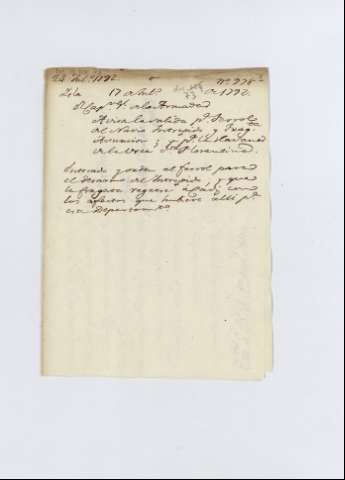 24 Jul.º 1792 nº 978
Isla 17 de Jul.º de 1792.
El Cap.n Gl. de la Armada
Avisa la salida p.ª Ferrol
del Navio Intrepido y Frag.ta
Asuncion, y p.ª la Havana
de la Urca Sta. Florentina.
Enterado y orden al Ferrol para
el desarmo del Intrepido, y que
la fragata regrese a Cadiz con
los efectos que hubiere alli p.ª
ese Departam.to